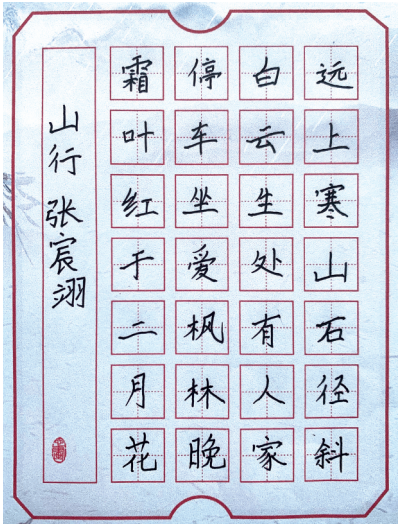 远上寒山石径斜
白云生处有人家
停车坐爱枫林晚
霜叶红于二月花
山行 张宸翊